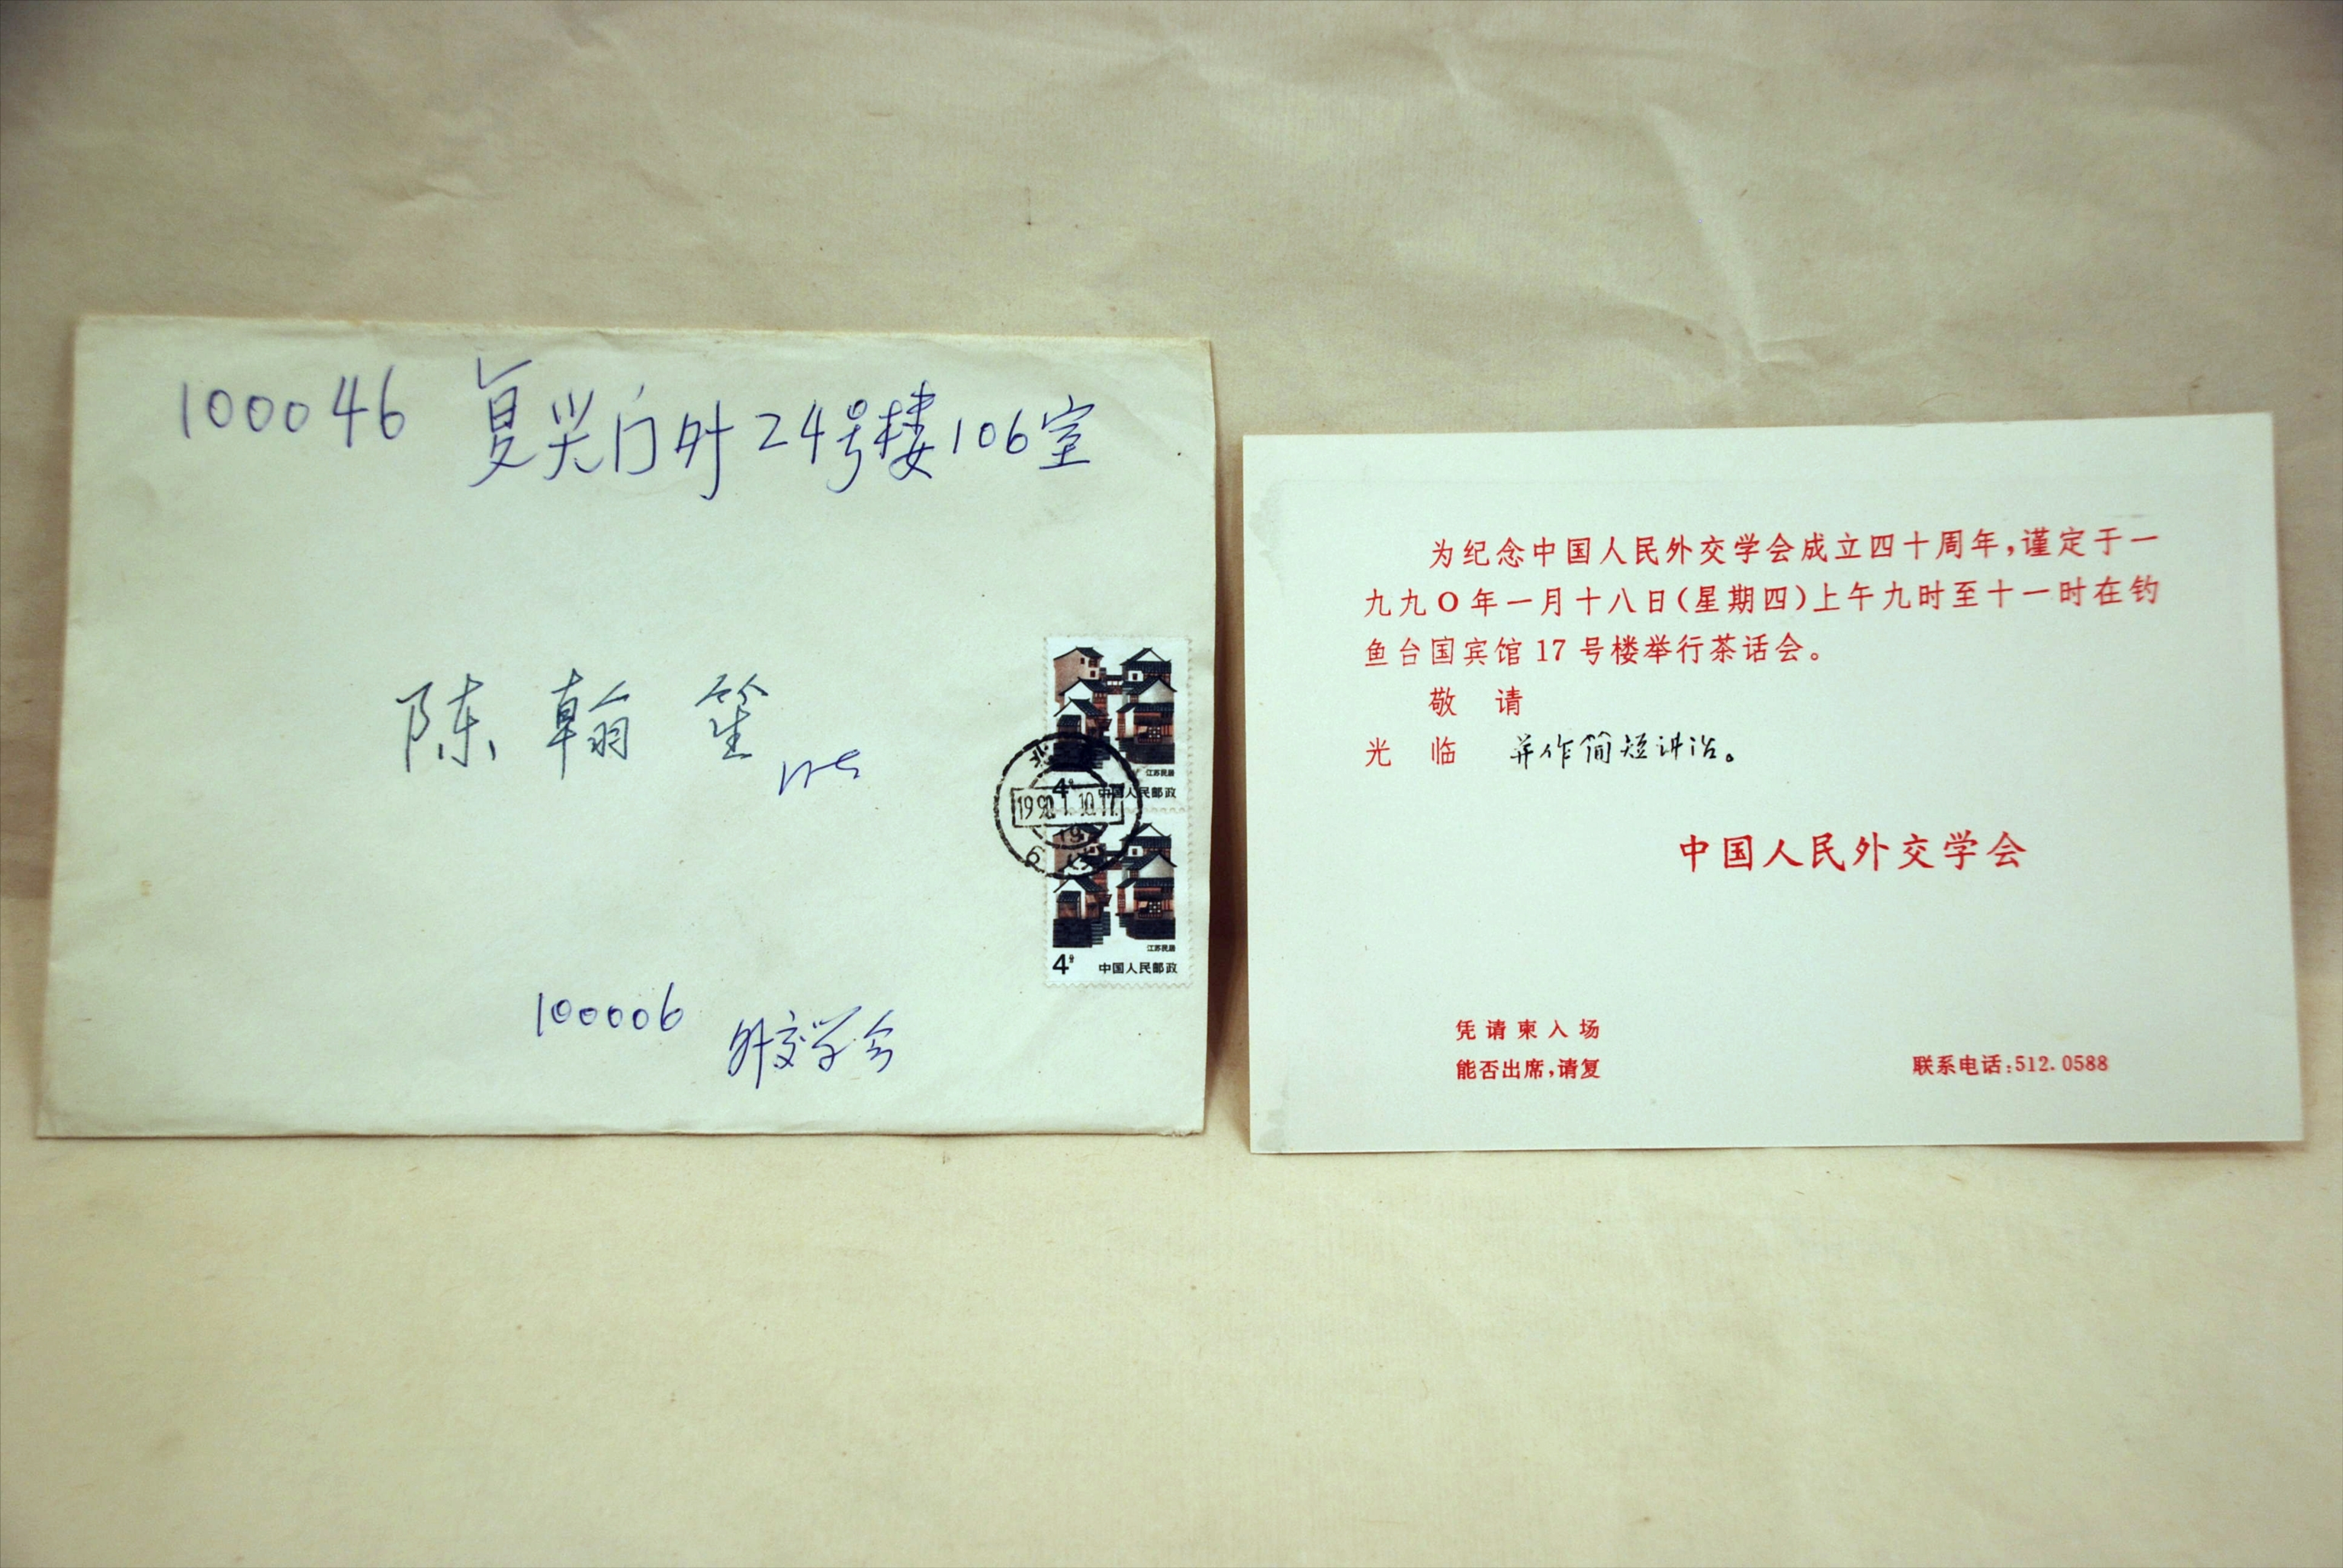 100046 复兴门外24号楼106室
陈翰笙
江苏民居
4分 中国人民邮政
1990.1.10.17
江苏民居
4分 中国人民邮政
100006 外交学会
为纪念中国人民外交学会成立四十周年,谨定于一
九九〇年一月十八日(星期四)上午九时至十一时在钓
鱼台国宾馆17号楼举行茶话会。
敬 请
光 临 并作简短讲话。
中国人民外交学会
凭请柬入场
能否出席,请复
联系电话:512.0588